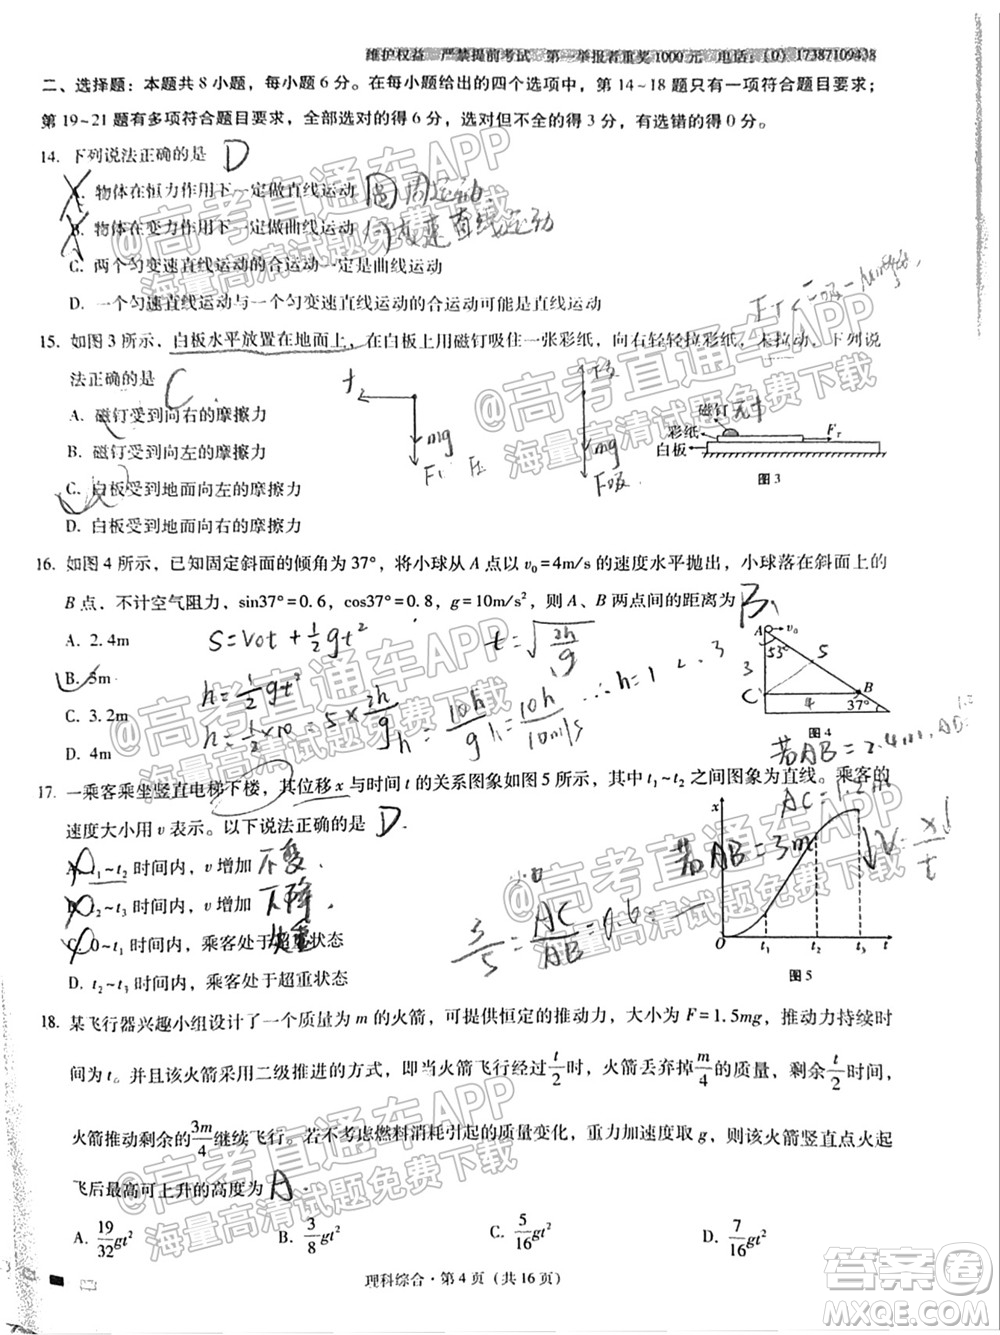 维护权益 严禁提前考试 第一举报者重奖1000元 电话:(0)17387109438
二、选择题：本题共8小题，每小题6分。在每小题给出的四个选项中，第14~18题只有一项符合题目要求；
第19~21题有多项符合题目要求，全部选对的得6分，选对但不全的得3分，有选错的得0分。
14. 下列说法正确的是 D
A. 物体在恒力作用下一定做直线运动
B. 物体在变力作用下一定做曲线运动
C. 两个匀变速直线运动的合运动一定是曲线运动
D. 一个匀速直线运动与一个匀变速直线运动的合运动可能是直线运动
15. 如图3所示，白板水平放置在地面上，在白板上用磁钉吸住一张彩纸，向右轻轻拉彩纸，未拉动，下列说
法正确的是 C
A. 磁钉受到向右的摩擦力
B. 磁钉受到向左的摩擦力
C. 白板受到地面向左的摩擦力
D. 白板受到地面向右的摩擦力
磁钉
彩纸
白板
F_T
图3
mg
mg
16. 如图4所示，已知固定斜面的倾角为37°，将小球从A点以v₀=4m/s的速度水平抛出，小球落在斜面上的
B点，不计空气阻力，sin37°=0.6，cos37°=0.8，g=10m/s²，则A、B两点间的距离为 B
A. 2.4m
B. 5m
C. 3.2m
D. 4m
S=v₀t+½gt²
A v₀
53°
5
3
C
4
37°
B
图4
17. 一乘客乘坐竖直电梯下楼，其位移x与时间t的关系图象如图5所示，其中t₁~t₂之间图象为直线。乘客的
速度大小用v表示。以下说法正确的是 D
A. t₁~t₂时间内，v增加 不变
B. t₂~t₃时间内，v增加 下降
C. 0~t₁时间内，乘客处于超重状态 失重
D. t₂~t₃时间内，乘客处于超重状态
若AB=3m
x
O t₁ t₂ t₃ t
图5
18. 某飞行器兴趣小组设计了一个质量为m的火箭，可提供恒定的推动力，大小为F=1.5mg，推动力持续时
间为t。并且该火箭采用二级推进的方式，即当火箭飞行经过t/2时，火箭丢弃掉m/4的质量，剩余t/2时间，
火箭推动剩余的3m/4继续飞行。若不考虑燃料消耗引起的质量变化，重力加速度取g，则该火箭竖直点火起
飞后最高可上升的高度为 A
A. 19/32gt²
B. 3/8gt²
C. 5/16gt²
D. 7/16gt²
理科综合·第4页（共16页）
@高考直通车APP
海量高清试题免费下载
@高考直通车APP
海量高清试题免费下载
@高考直通车APP
海量高清试题免费下载
@高考直通车APP
海量高清试题免费下载
@高考直通车APP
海量高清试题免费下载
答案圈
MXQE.COM